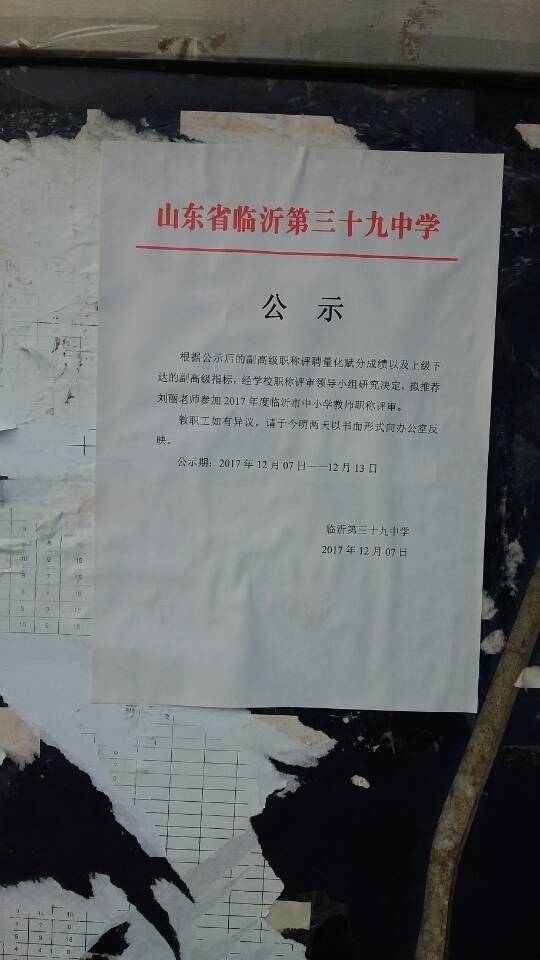 山东省临沂第三十九中学
公 示
根据公示后的副高级职称评聘量化赋分成绩以及上级下
达的副高级指标，经学校职称评审领导小组研究决定，拟推荐
刘丽老师参加 2017 年度临沂市中小学教师职称评审。
教职工如有异议，请于今明两天以书面形式向办公室反
映。
公示期：2017 年 12 月 07 日——12 月 13 日
临沂第三十九中学
2017 年 12 月 07 日